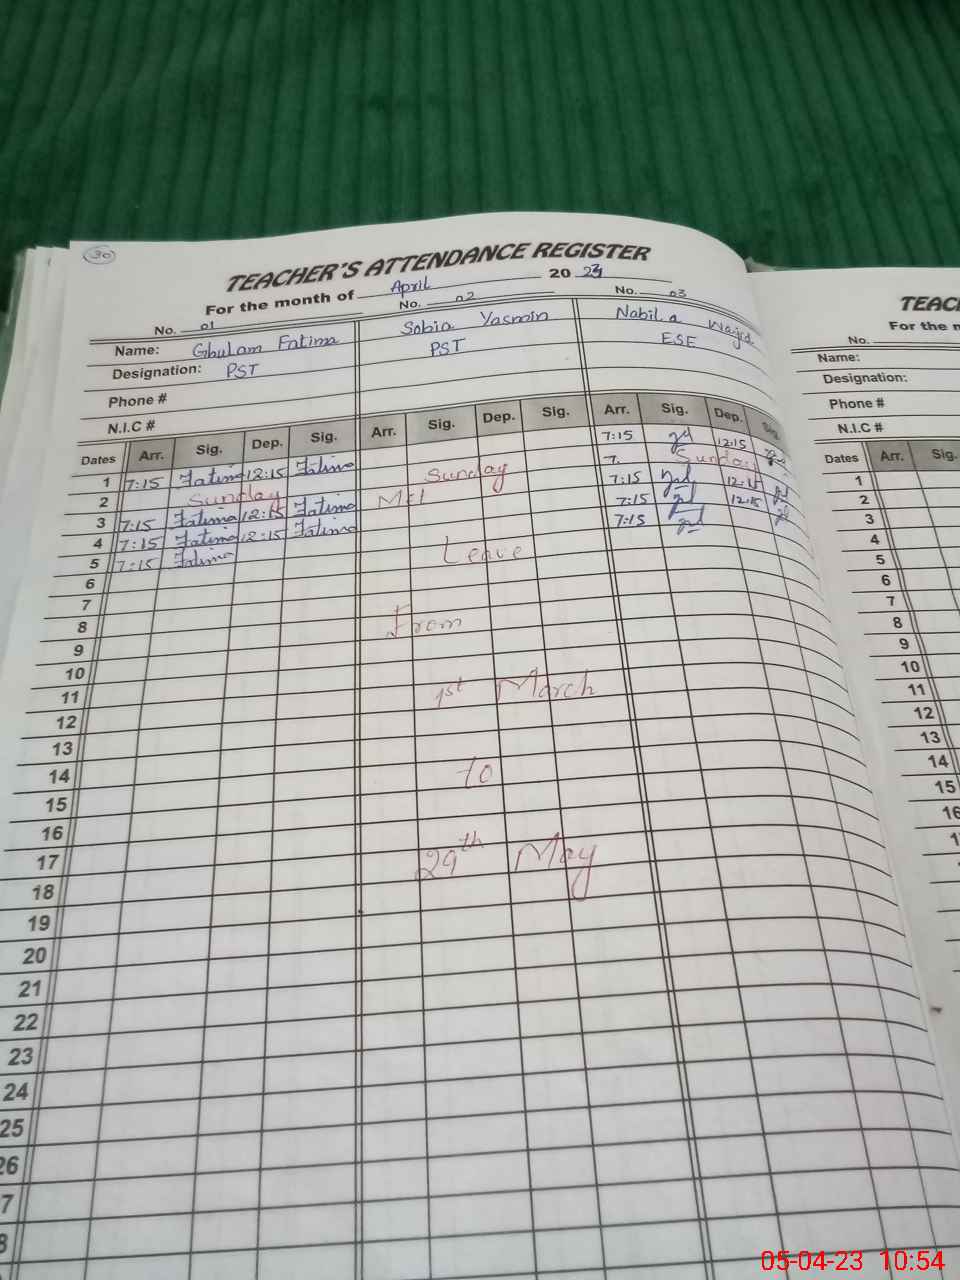 30
TEACHER'S ATTENDANCE REGISTER
For the month of April 20 23
No. 01 No. 02 No. 03
Name: Ghulam Fatima Sobia Yasmin Nabila Wajid
Designation: PST PST ESE
Phone #
N.I.C #
Dates Arr. Sig. Dep. Sig. Arr. Sig. Dep. Sig. Arr. Sig. Dep. Sig.
1 7:15 Fatima 12:15 Fatima 7:15 12:15
2 Sunday Sunday 7. Sunday
3 7:15 Fatima 12:15 Fatima 7:15 12:15
4 7:15 Fatima 12:15 Fatima 7:15 12:15
5 7:15 Fatima Leave 7:15
6
7
8 From
9
10
11 1st March
12
13
14 to
15
16
17 29th May
18
19
20
21
22
23
24
25
26
7
8
TEAC
For the m
No.
Name:
Designation:
Phone #
N.I.C #
Dates Arr. Sig.
1
2
3
4
5
6
7
8
9
10
11
12
13
14
15
16
05-04-23 10:54